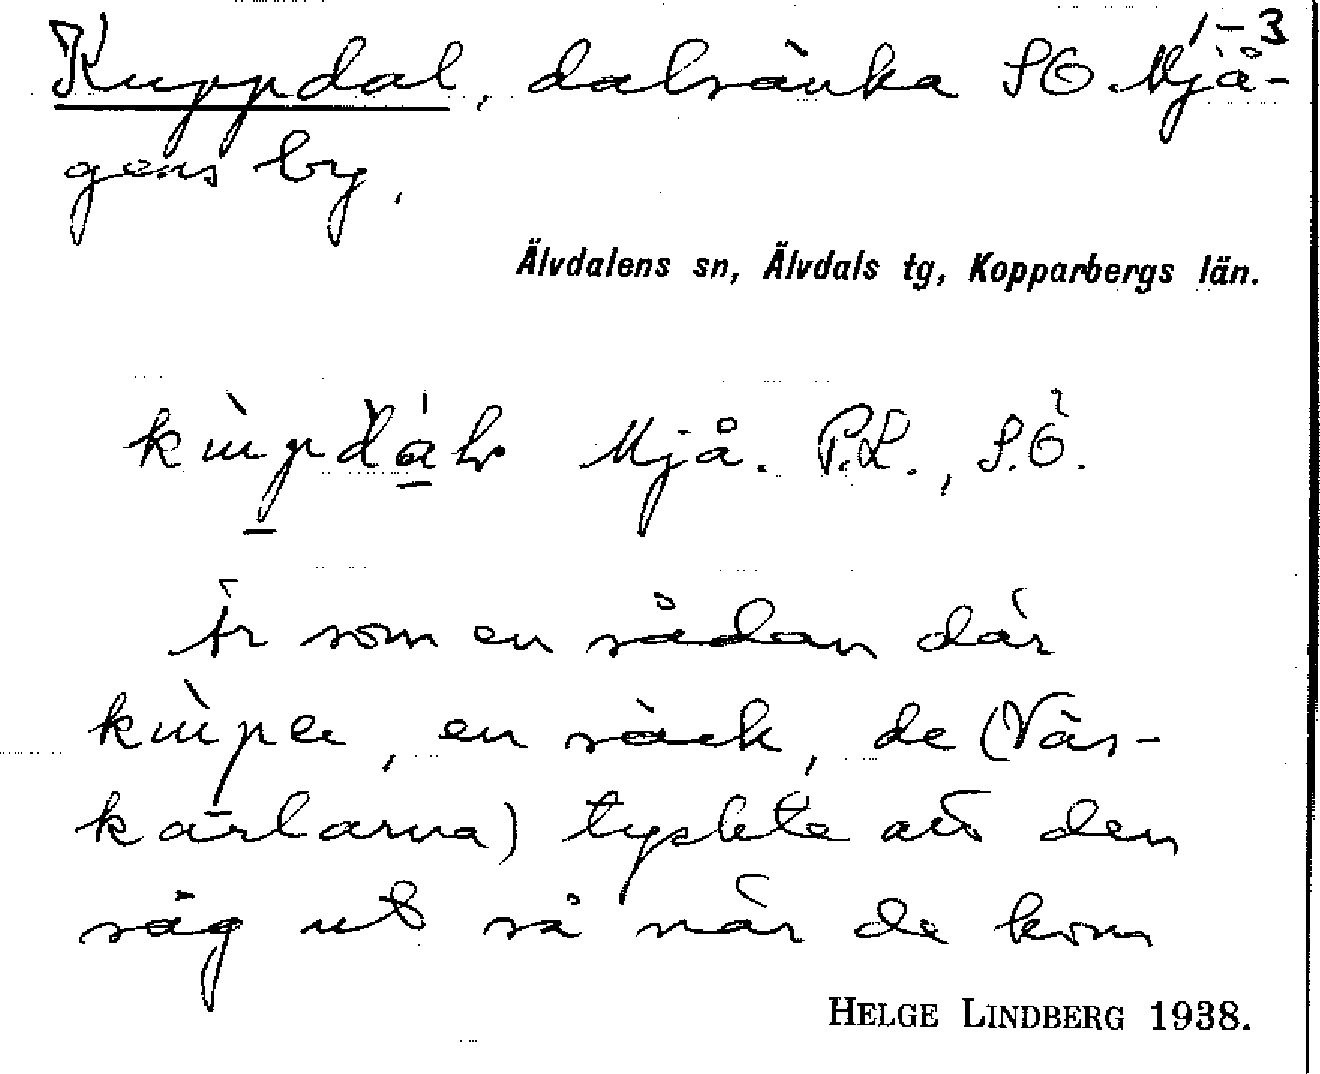 1–3
Kuppdal, dalsänka SO. Mjå-
gens by.
Älvdalens sn, Älvdals tg, Kopparbergs län.
Mjå. P.L., S.O.
Är som en sådan där
en säck, de (Näs-
karlarna) tyckte att den
såg ut så när de kom
HELGE LINDBERG 1938.